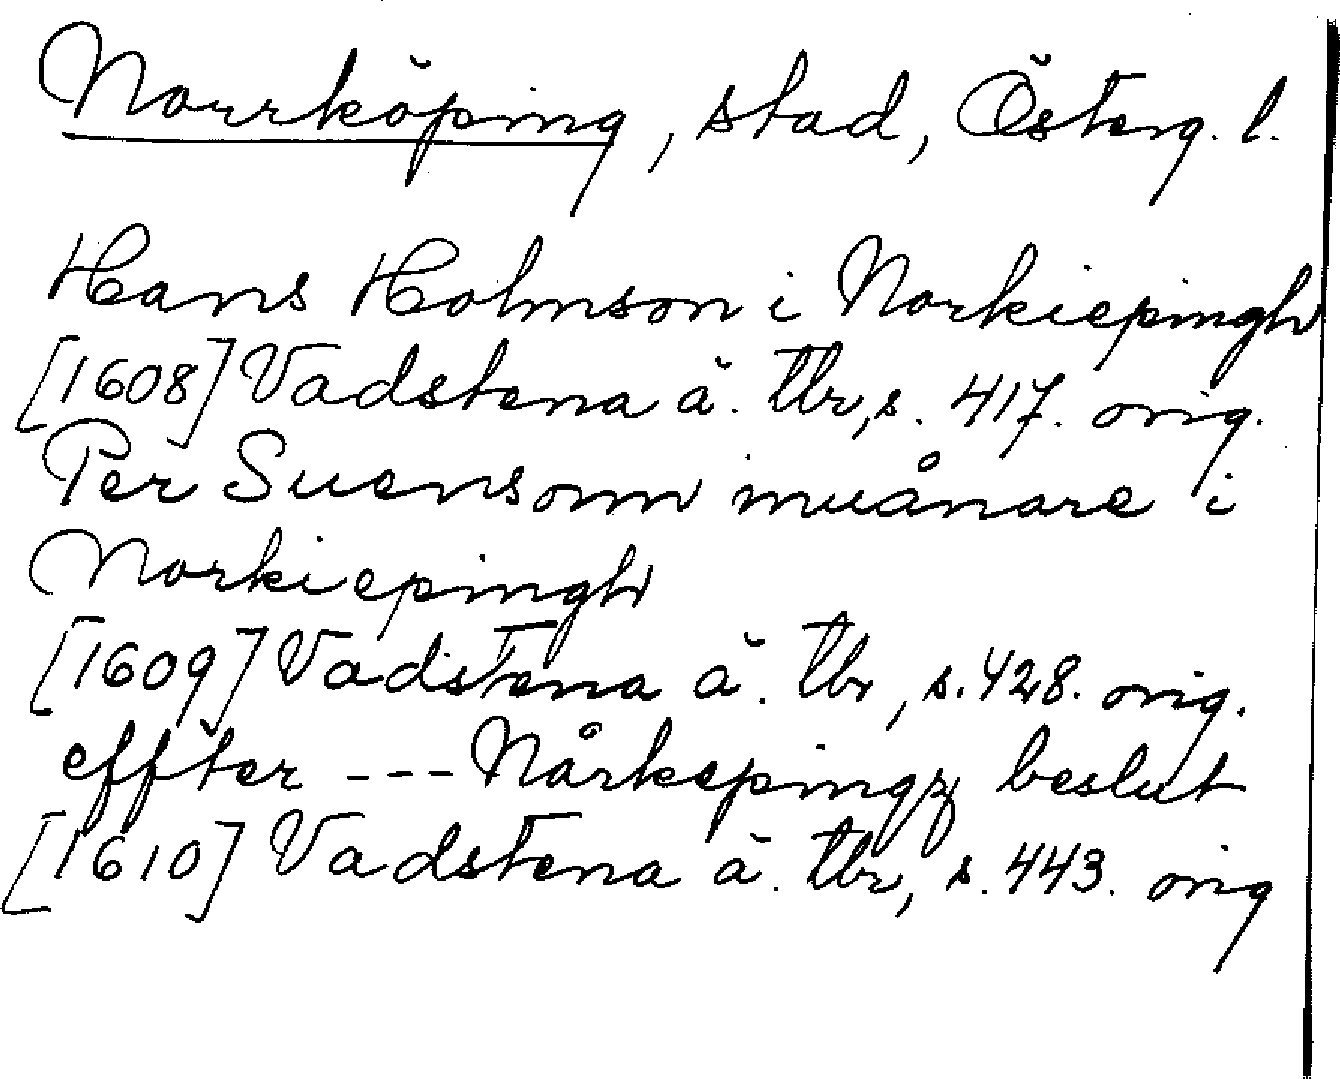 Norrköping, stad, Österg. l.
Hans Holmson i Norkiepingh
[1608] Vadstena ä. tbr, s. 417. orig.
Per Suensonn muånare i
Norkiepingh
[1609] Vadstena ä. tbr, s. 428. orig.
effter --- Nårkepingz beslut
[1610] Vadstena ä. tbr, s. 443. orig